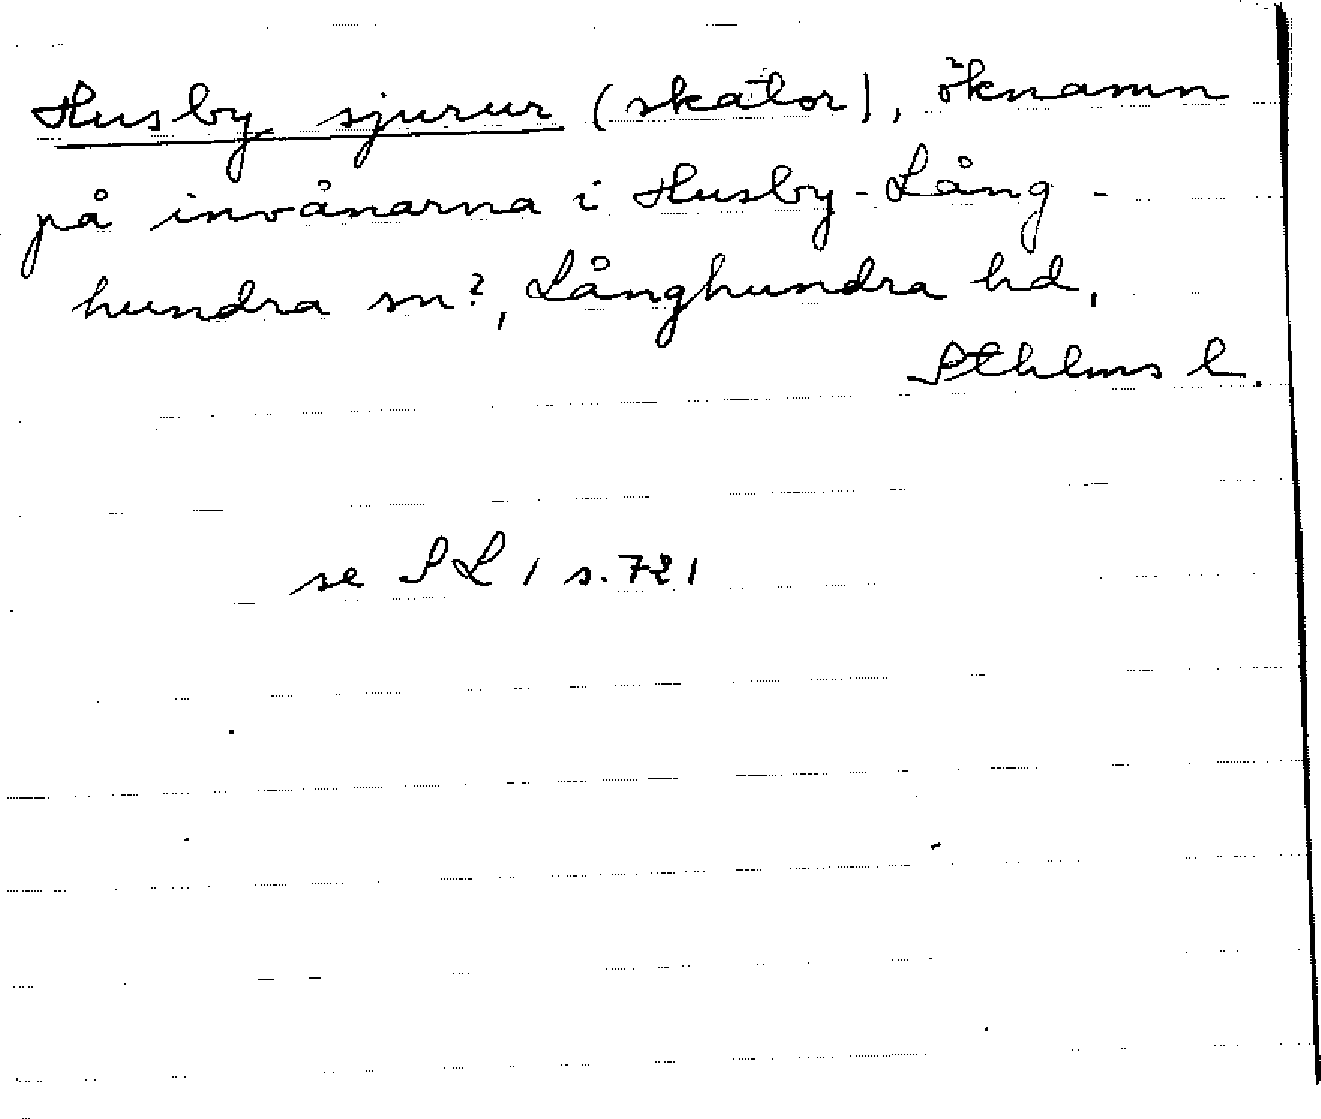 Husby sjurur (skator), öknamn
på invånarna i Husby-Lång-
hundra sn?, Långhundra hd,
Sthlms l.
se SL 1 s. 721